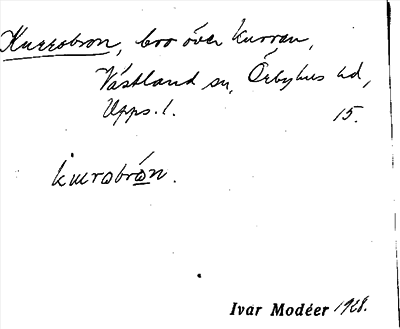 Kurrobron, bro över Kurran,
Västland sn, Örbyhus hd,
Upps. l. 15.
kurobrón.
Ivar Modéer 1928.